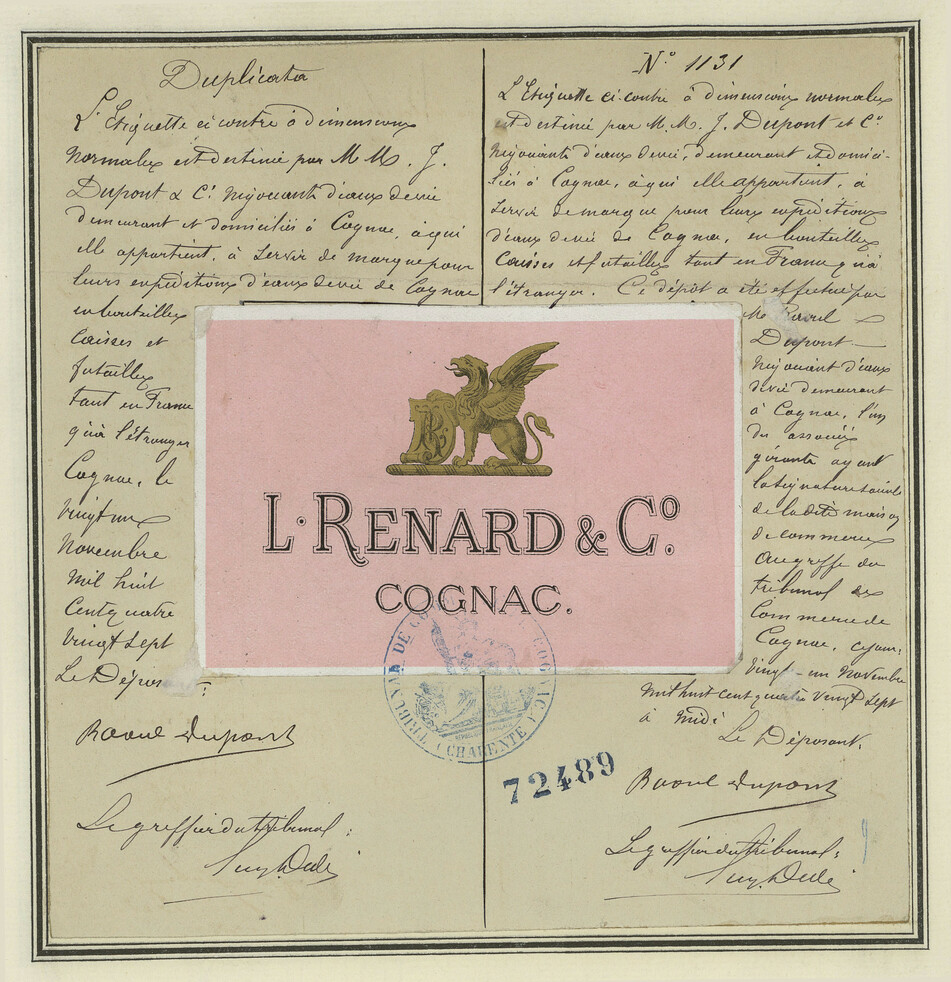 Duplicata
L'Etiquette ci contre à dimensions
normales est destinée par M.M. J.
Dupont & Cie négociants d'eaux de vie
demeurant et domiciliés à Cognac, à qui
elle appartient, à servir de marque pour
leurs expéditions d'eaux de vie de Cognac
en bouteilles
caisses et
futailles
tant en France
qu'à l'étranger
Cognac, le
vingt un
Novembre
mil huit
cent quatre
vingt sept
Le Dépos
Raoul Dupont
Le greffier du tribunal:
N° 1131
L'Etiquette ci contre à dimensions normales
est destinée par M.M. J. Dupont et Cie
négociants d'eaux de vie, demeurant et domici-
liés à Cognac, à qui elle appartient, à
servir de marque pour leurs expéditions
d'eaux de vie de Cognac, en bouteilles
caisses et futailles tant en France qu'à
l'étranger. Ce dépôt a été effectué par
Mr Raoul
Dupont
négociant d'eaux
de vie demeurant
à Cognac, l'un
des associés
gérants ayant
la signature sociale
de la dite maison
de commerce
au greffe du
tribunal de
Commerce de
Cognac, ce jour,
vingt un Novembre
mil huit cent quatre vingt sept
à midi
Le Déposant,
Raoul Dupont
Le greffier du tribunal:
L. RENARD & Co.
COGNAC.
TRIBUNAL DE COGNAC (CHARENTE)
72489